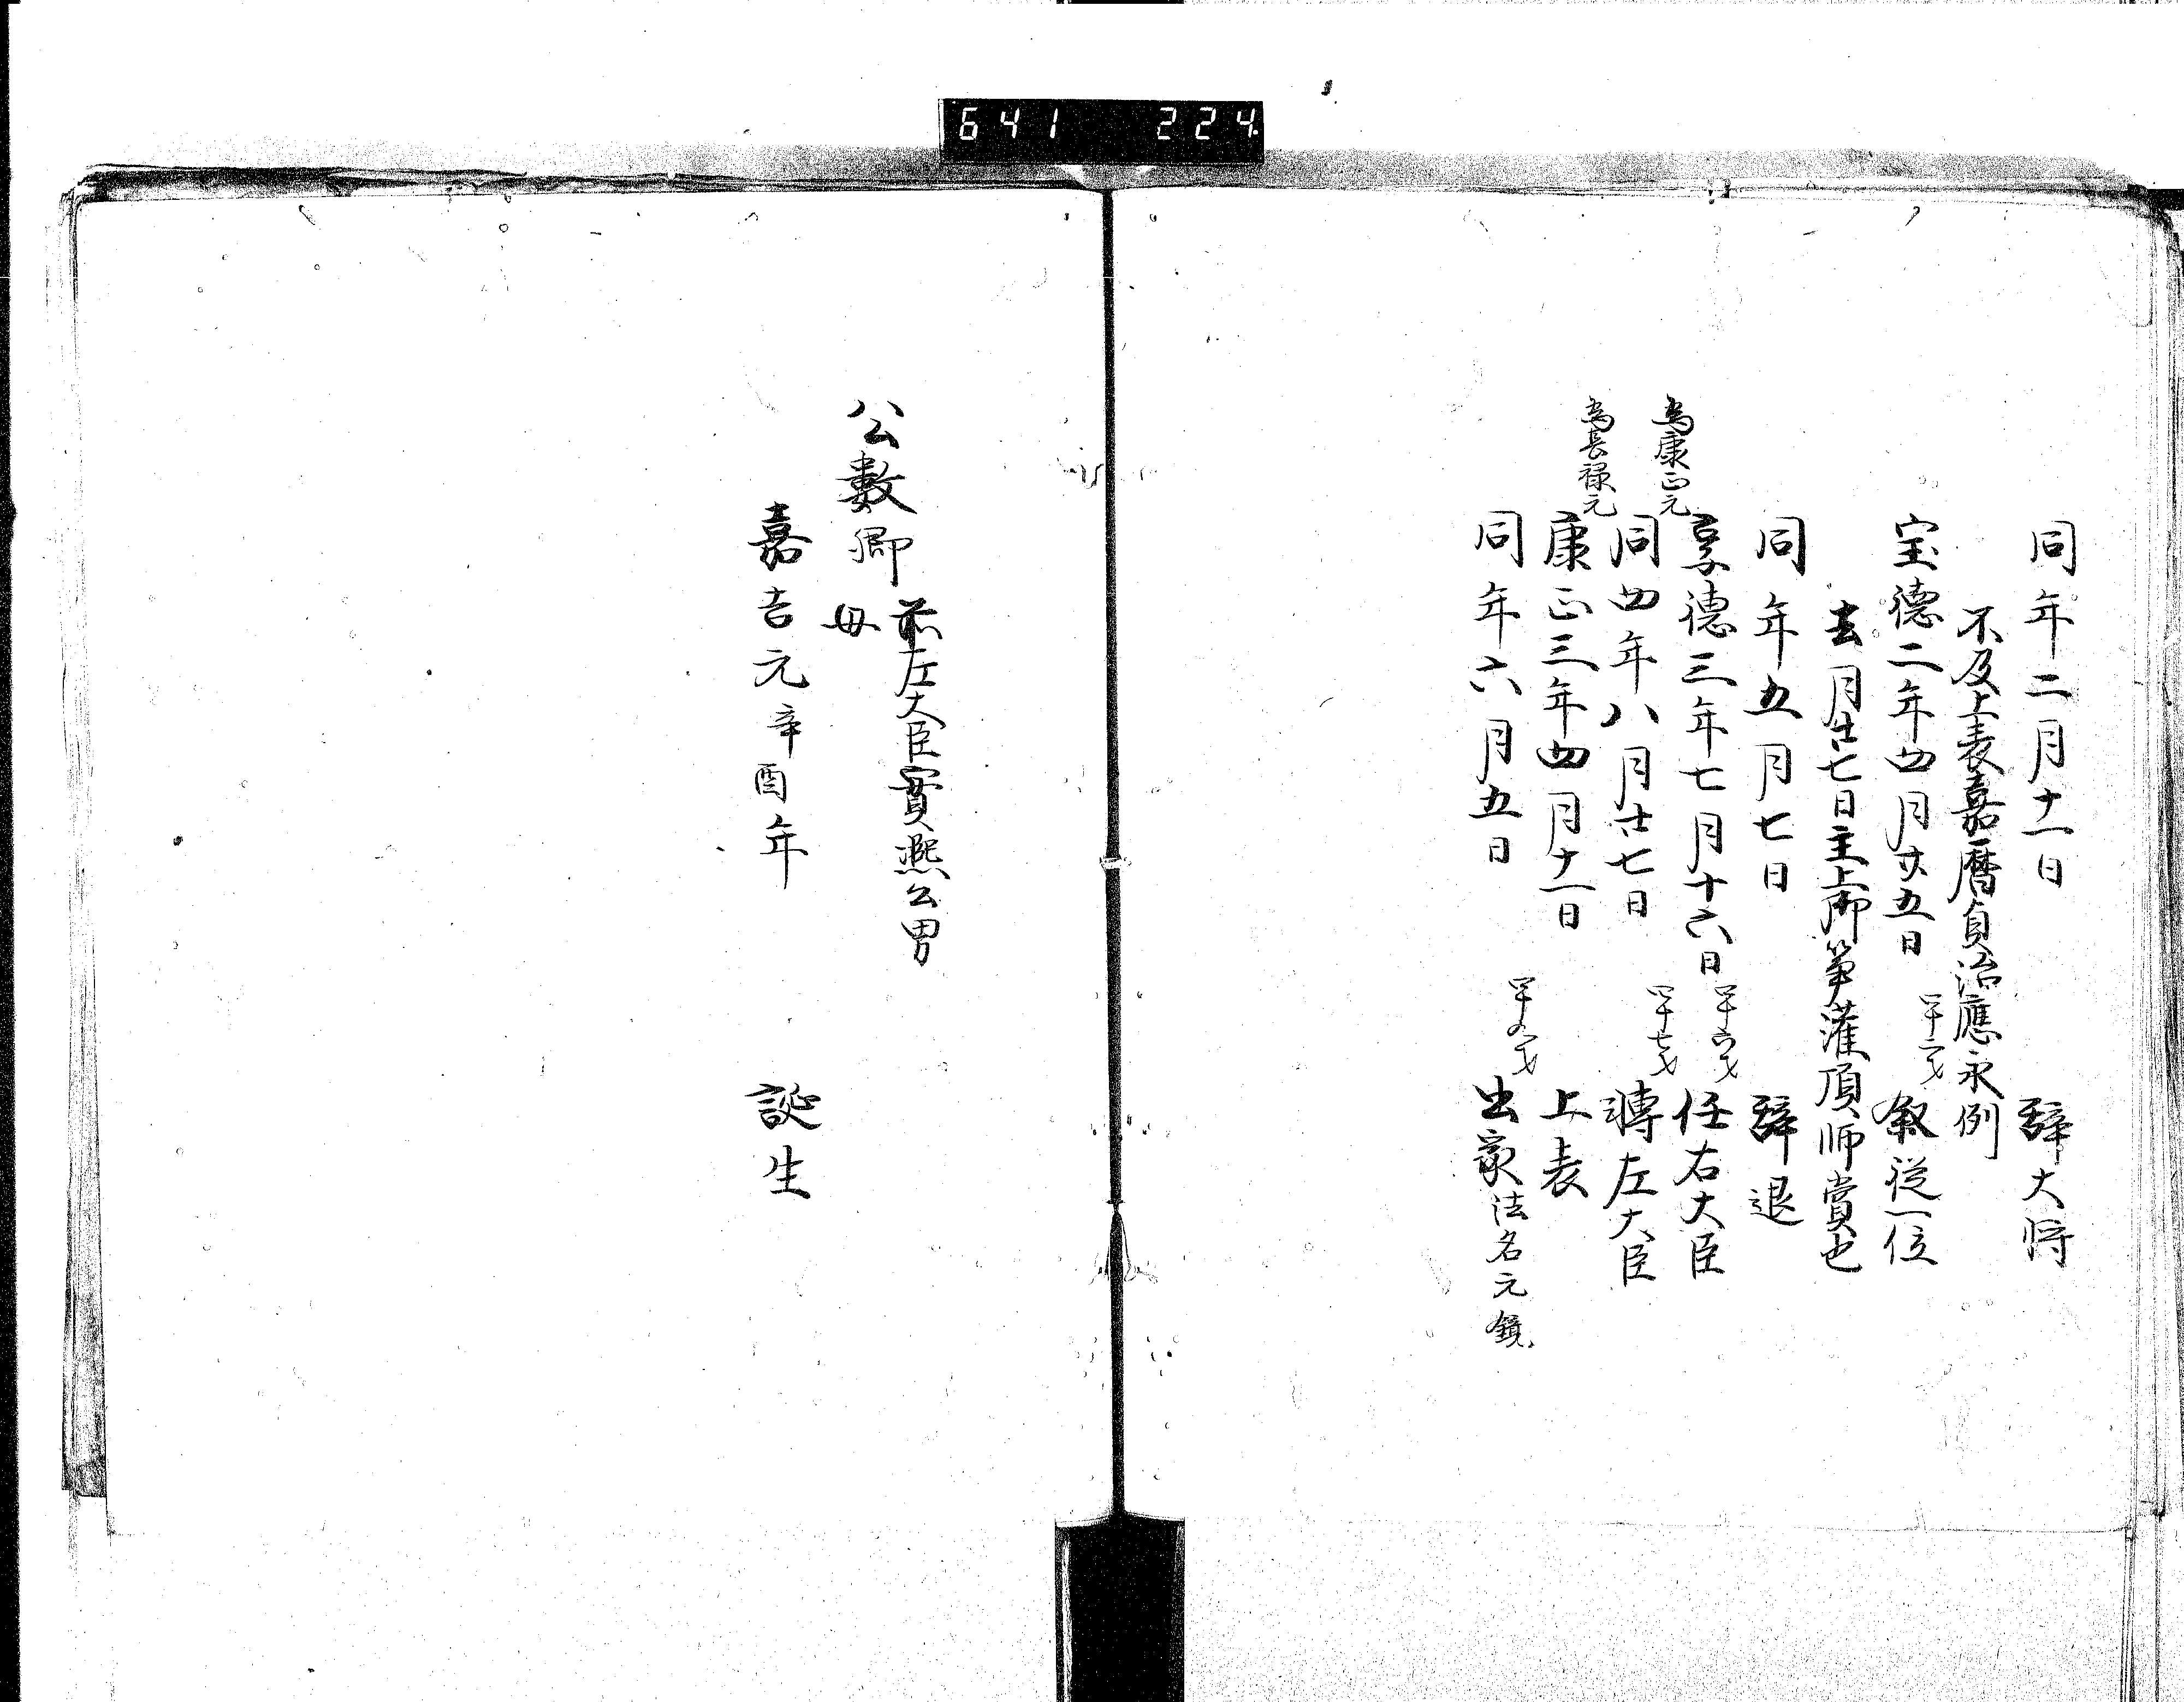 641 224
同年二月十一日 辞大将
不及上表嘉暦貞治應永例
宝徳二年四月廿五日 四十二才 叙従一位
去月廿七日主上御箏灌頂師賞也
同年五月七日 辞退
享徳三年七月十六日 四十六才 任右大臣
為康正元
同四年八月廿七日 四十七才 轉左大臣
為長禄元
康正三年四月十一日 上表
同年六月五日 四十九才 出家法名元鏡
公數卿 前左大臣實凞公男
母
嘉吉元辛酉年 誕生